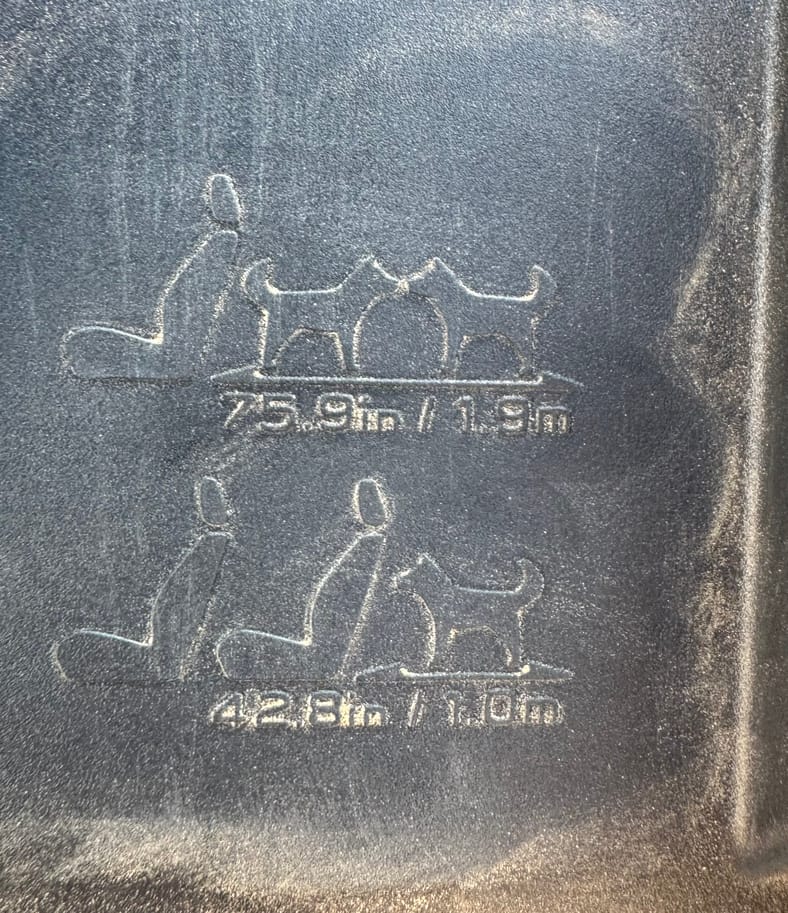 75.9in / 1.9m
42.8in / 1.0m